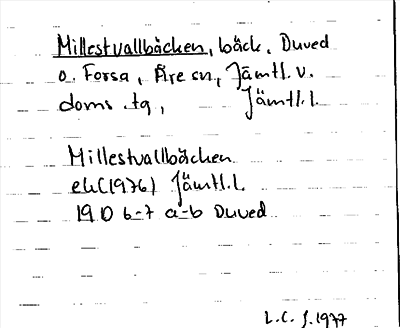 Millestvallbäcken, bäck, Duved
o. Forsa, Åre sn, Jämtl. v.
doms.tg, Jämtl.l.
Millestvallbäcken
ek(1976) Jämtl.l.
19 D 6-7 a-b Duved
L.C. J. 1977